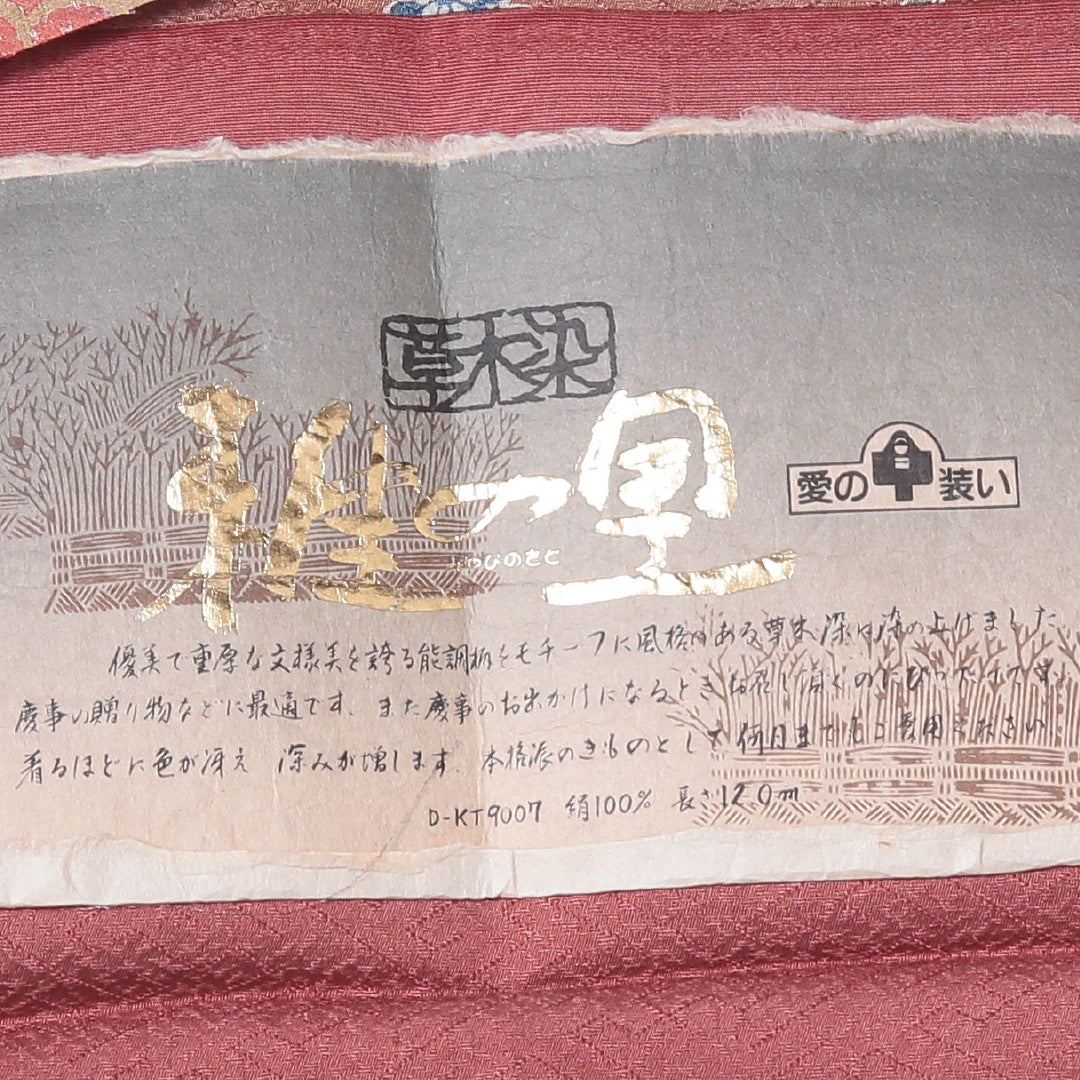 草木染
雅の里
みやびのさと
愛の装い
優美で重厚な文様美を誇る能調柄をモチーフに風格のある草木染に染め上げました
慶事の贈り物などに最適です。また慶事のお出かけになるときお召し頂くのにぴったりです。
着るほどに色が冴え 深みが増します。本格派のきものとして何日までもご愛用ください。
D-KT9007 絹100% 長さ12.0m